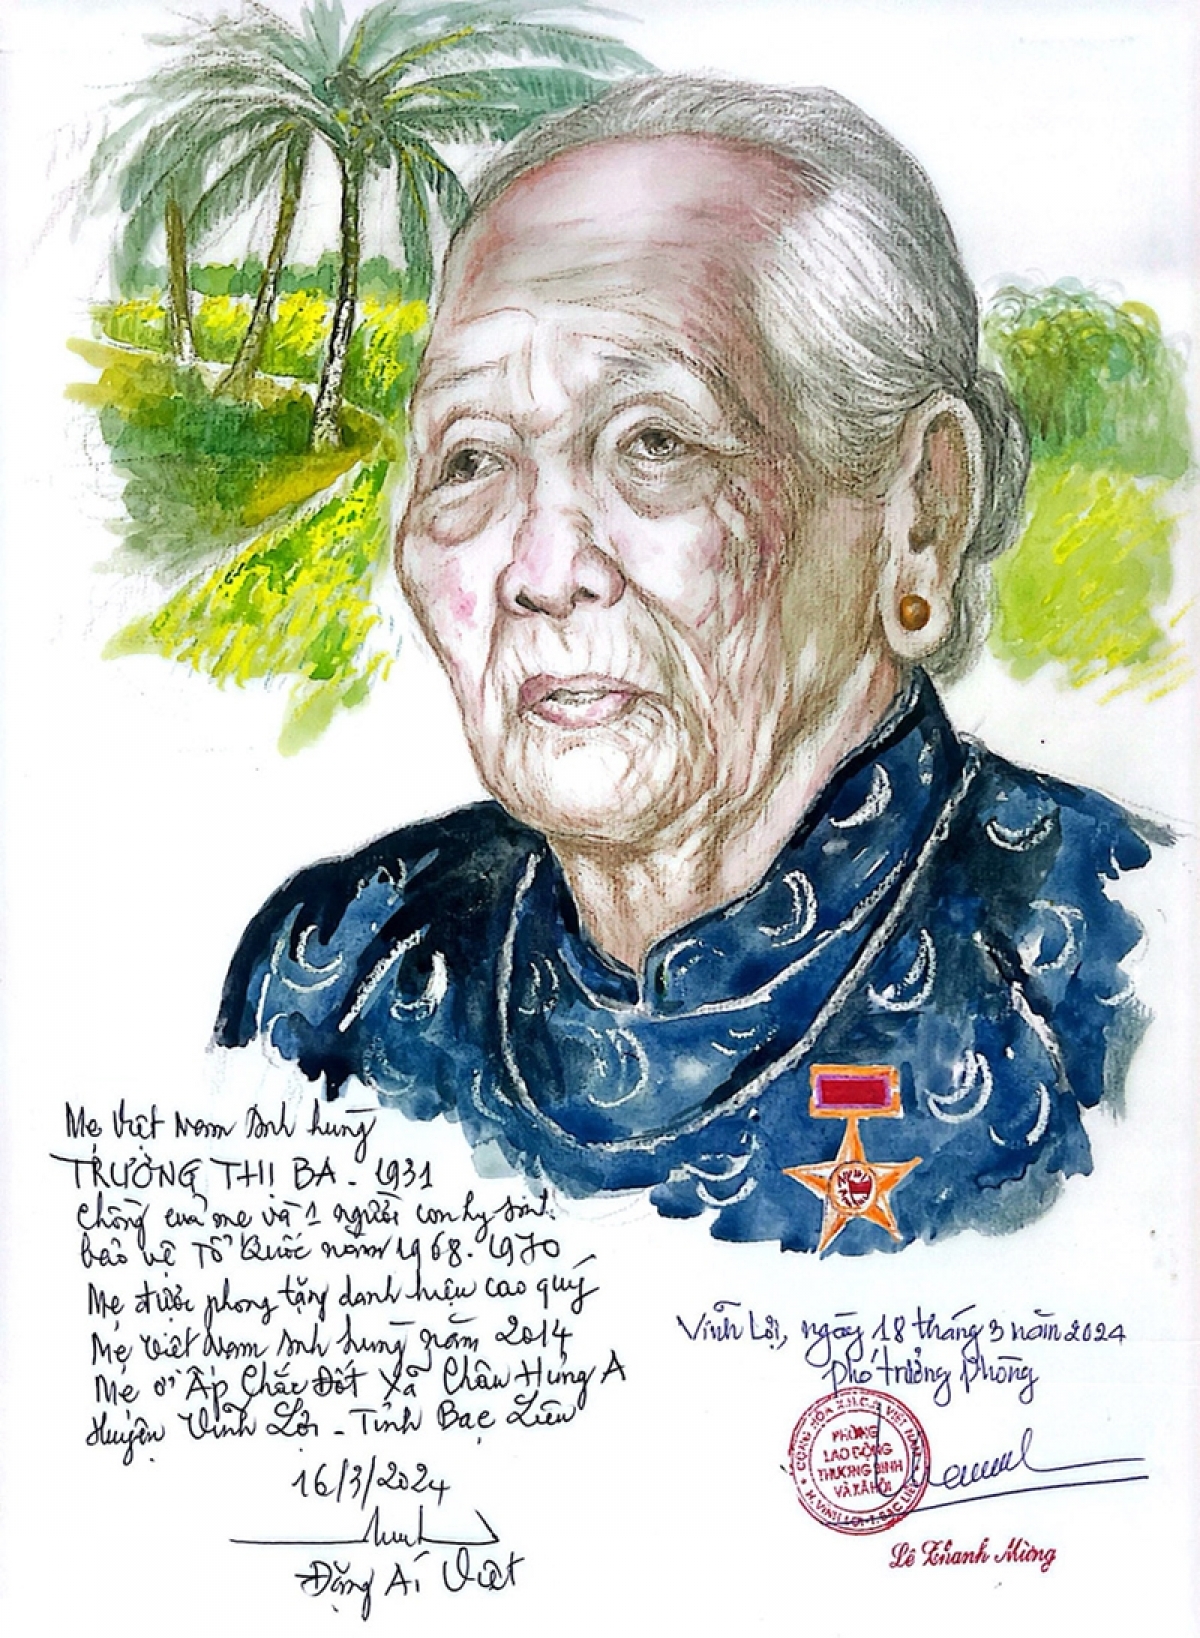 Mẹ Việt Nam Anh hùng
TRƯỜNG THỊ BA - 1931
Chồng của mẹ và 1 người con hy sinh
bảo vệ Tổ Quốc năm 1968-1970
Mẹ được phong tặng danh hiệu cao quý
Mẹ Việt Nam Anh hùng năm 2014
Mẹ ở Ấp Chắc Đốt Xã Châu Hưng A
Huyện Vĩnh Lợi - Tỉnh Bạc Liêu
16/3/2024
Đặng Ái Việt
Vĩnh Lợi, ngày 18 tháng 3 năm 2024
Phó trưởng phòng
CỘNG HÒA X.H.C.N VIỆT NAM
PHÒNG
LAO ĐỘNG
THƯƠNG BINH
VÀ XÃ HỘI
H. VĨNH LỢI - T. BẠC LIÊU
Lê Thanh Mừng